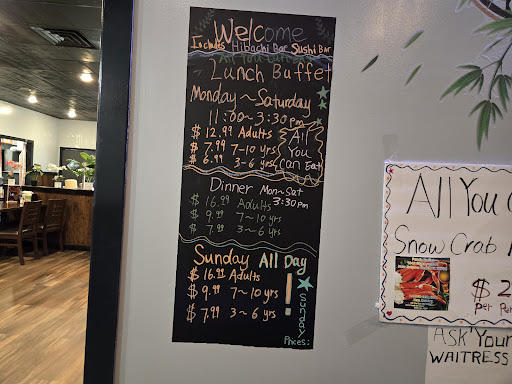 Welcome
Includs Hibachi Bar Sushi Bar
All You Can Eat
Lunch Buffet
Monday ~ Saturday
11:00 ~ 3:30 pm
$ 12.99 Adults
$ 7.99 7-10 yrs
$ 6.99 3-6 yrs
All
You
Can Eat
Dinner Mon~Sat
3:30 pm
$ 16.99 Adults
$ 9.99 7~10 yrs
$ 7.99 3~6 yrs
Sunday All Day
$ 16.99 Adults
$ 9.99 7~10 yrs
$ 7.99 3~6 yrs
Sunday
Prices:
All You
Snow Crab
$ 2
per
Ask Your
WAITRESS